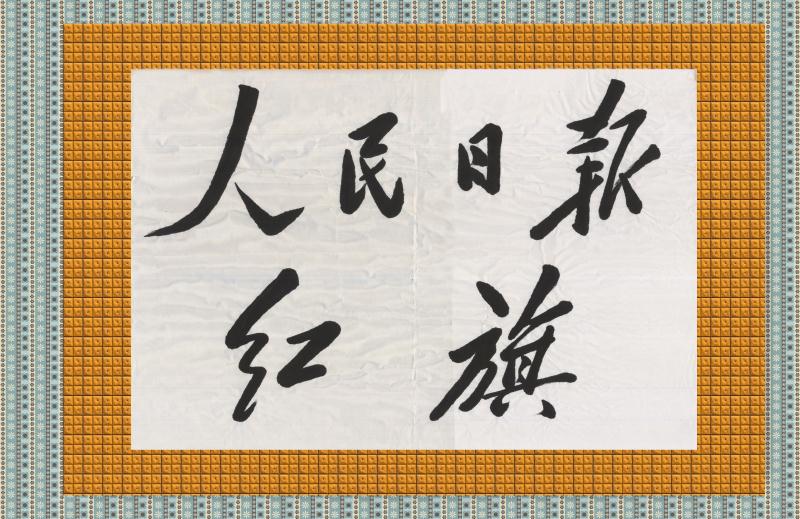 人民日報
红旗